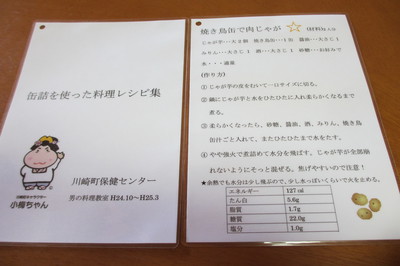 缶詰を使った料理レシピ集
川崎町キャラクター
小梅ちゃん
川崎町保健センター
男の料理教室 H24.10～H25.3
焼き鳥缶で肉じゃが
(材料)
じゃが芋・・大2個 焼き鳥缶・・1缶 醤油・・大さじ1
みりん・・大さじ1 酒・・大さじ1 砂糖・・お好みで
水・・・適量
(作り方)
① じゃが芋の皮をむいて一口サイズに切る。
② 鍋にじゃが芋と水をひたひたに入れ柔らかくなるまで
煮る。
③ 柔らかくなったら、砂糖、醤油、酒、みりん、焼き鳥
缶汁ごと入れて、またひたひたまで水をたす。
④ やや強火で煮詰めて水分を飛ばす。じゃが芋が全部崩
れないようにそっと混ぜる。焦げやすいので注意！
★余熱でも水分は少し飛ぶので、少し水っぽいくらいで火を止める。
エネルギー 127㎉
たん白 5.6g
脂質 1.7g
糖質 22.0g
塩分 1.0g